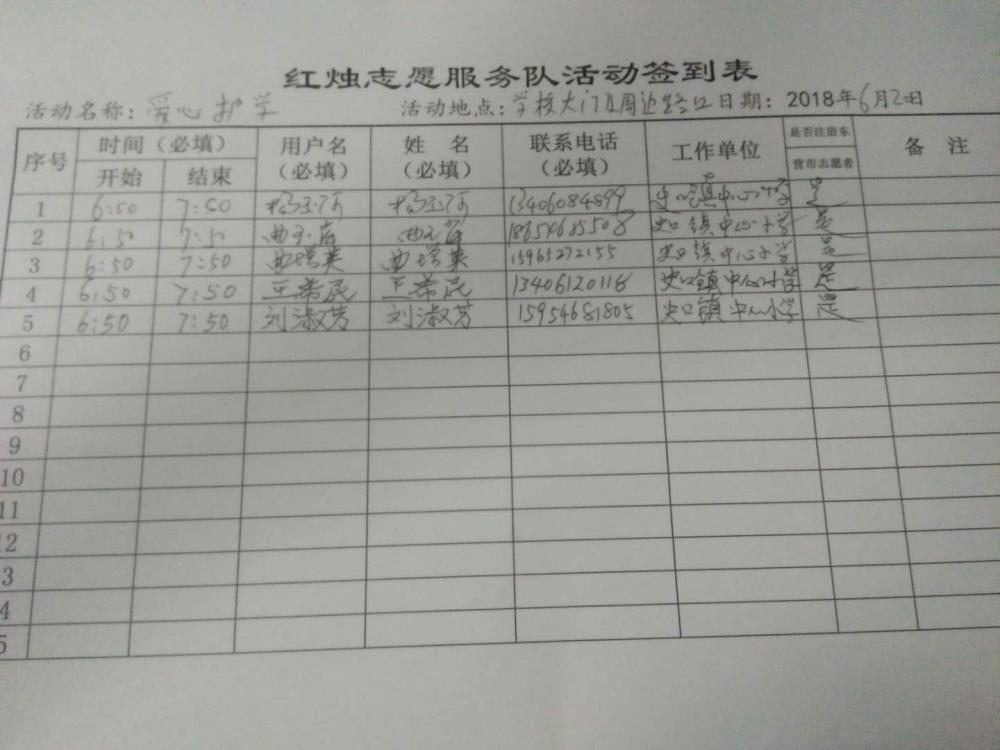 红烛志愿服务队活动签到表
活动名称：爱心护学 活动地点：学校大门及周边路口 日期：2018年6月2日
序号 时间（必填） 用户名（必填） 姓名（必填） 联系电话（必填） 工作单位 是否注册东营市志愿者 备注
开始 结束
1 6:50 7:50 13406084899 史口镇中心小学 是
2 6:50 7:50 史口镇中心小学 是
3 6:50 7:50 15965272155 史口镇中心小学 是
4 6:50 7:50 王希民 王希民 13406120118 史口镇中心小学 是
5 6:50 7:50 刘淑芳 刘淑芳 15954681805 史口镇中心小学 是
6
7
8
9
10
11
2
3
4
5